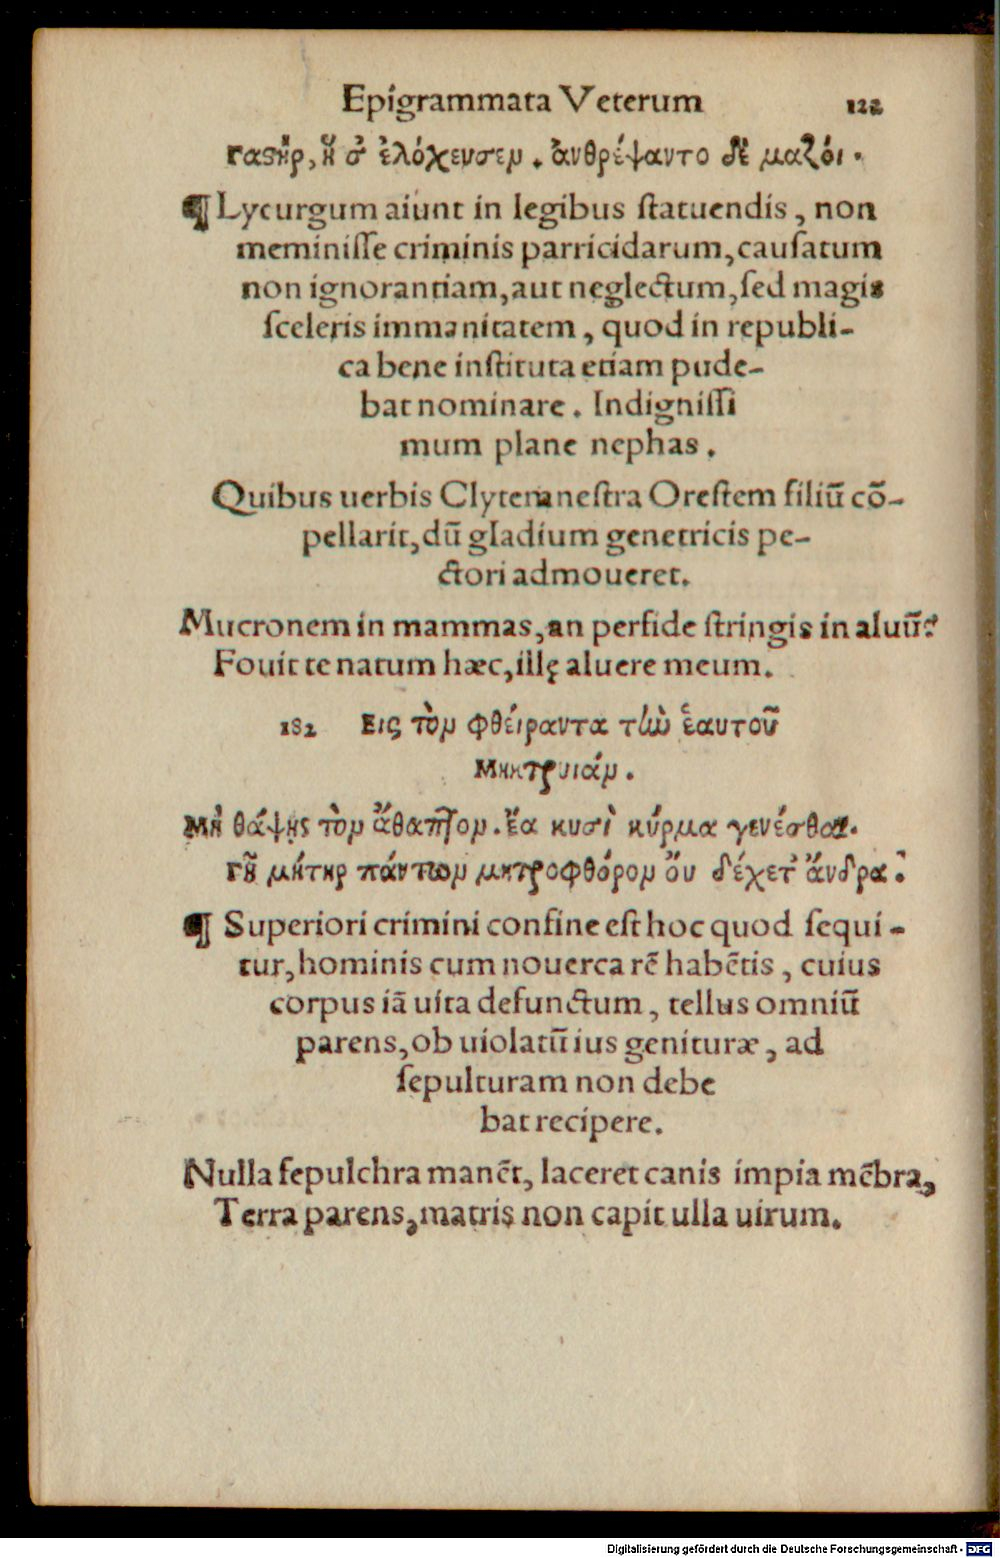 Epigrammata Veterum 122
γαϛὴρ, ἥ σ' ἐλόχευσεν . ἀνθρέψαντο δὲ μαζόι.
¶ Lycurgum aiunt in legibus ſtatuendis, non
meminiſſe criminis parricidarum, cauſatum
non ignorantiam, aut neglectum, ſed magis
ſceleris immanitatem, quod in republi-
ca bene inſtituta etiam pude-
bat nominare. Indigniſſi
mum plane nephas.
Quibus uerbis Clytemneſtra Oreſtem filiū cō-
pellarit, dū gladium genetricis pe-
ctori admoueret.
Mucronem in mammas, an perfide ſtringis in aluū?
Fouit te natum hæc, illę aluere meum.
182 Εις τὸν φθείραντα τὴν ἑαυτοῦ
μητρυιάν.
Μὴ θάψῃς τὸν ἄθαπτον. ἔα κυσὶ κύρμα γενέσθαι.
γῆ μήτηρ πάντων μητροφθόρον ὄυ δέχετ' ἄνδρα.
¶ Superiori crimini confine eſt hoc quod ſequi-
tur, hominis cum nouerca rē habētis, cuius
corpus iā uita defunctum, tellus omniū
parens, ob uiolatū ius genituræ, ad
ſepulturam non debe
bat recipere.
Nulla ſepulchra manēt, laceret canis impia mēbra,
Terra parens, matris non capit ulla uirum.
Digitalisierung gefördert durch die Deutsche Forschungsgemeinschaft - DFG